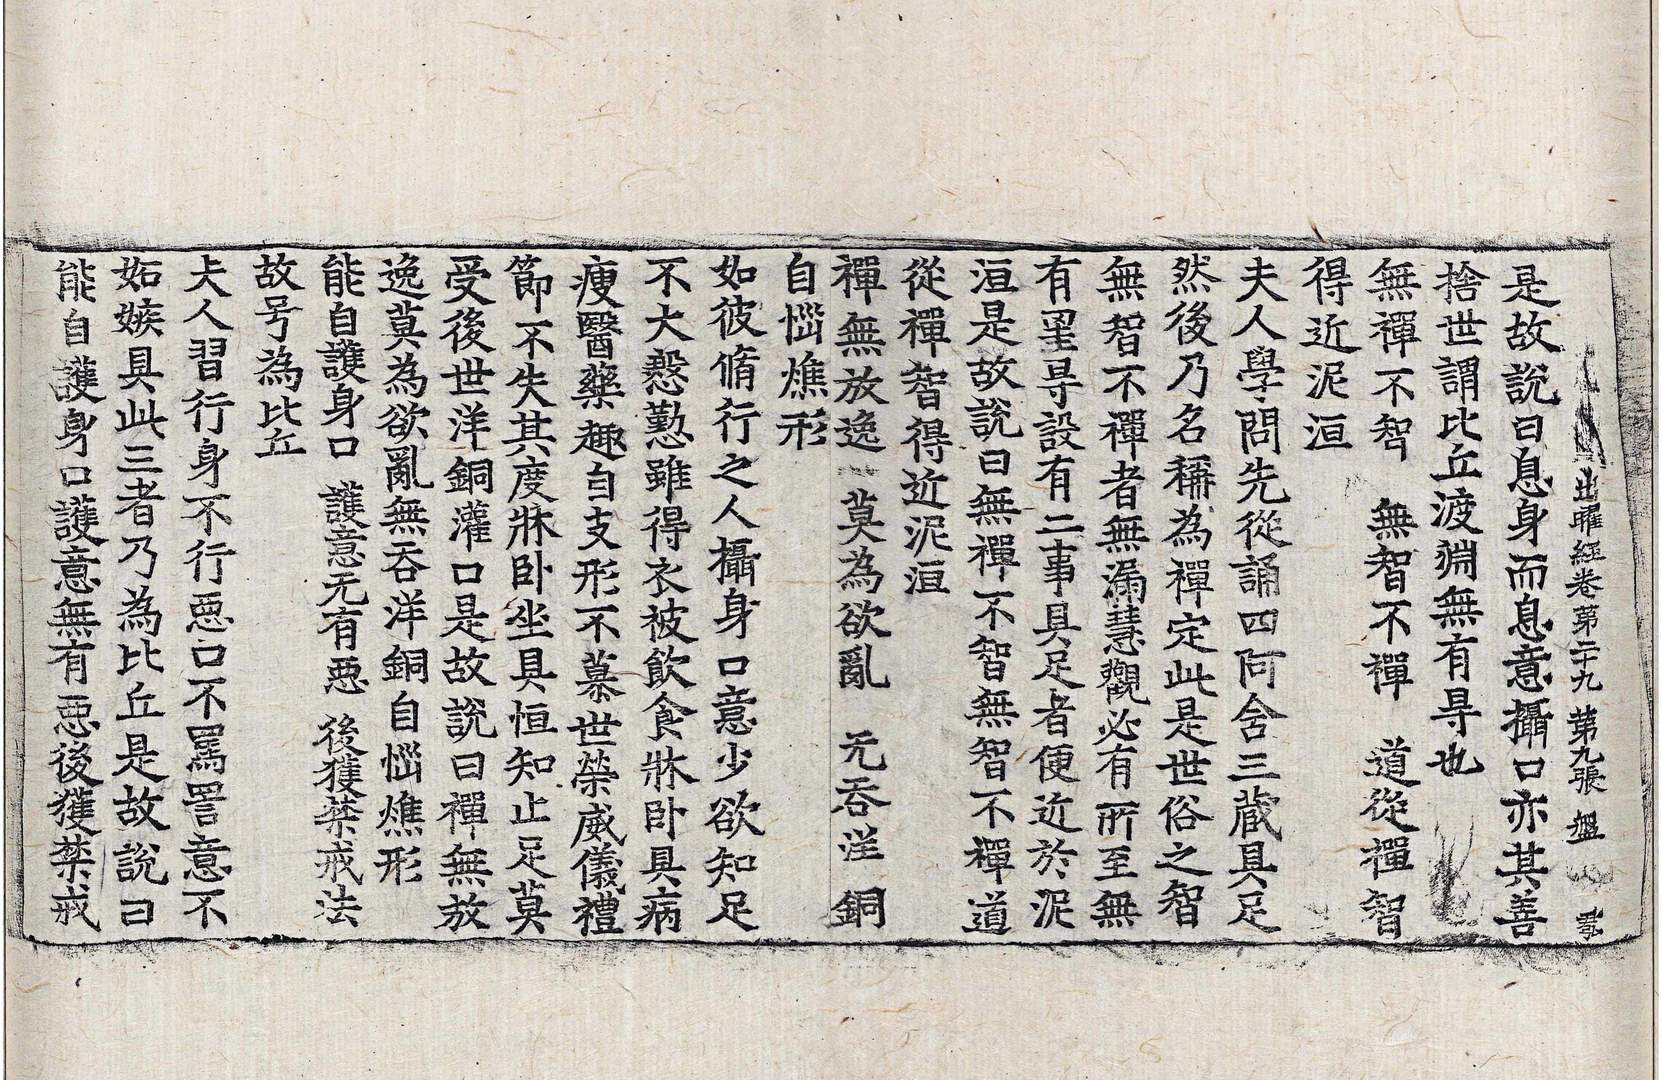 出曜經卷第二十九 第九張 盤
是故說曰息身而息意攝口亦其善
捨世謂比丘渡淵無有㝵也
無禪不智 無智不禪 道從禪智
得近泥洹
夫人學問先從誦四阿含三藏具足
然後乃名稱為禪定此是世俗之智
無智不禪者無漏慧觀必有所至無
有罣㝵設有二事具足者便近於泥
洹是故說曰無禪不智無智不禪道
從禪智得近泥洹
禪無放逸 莫為欲亂 无吞洋銅
自惱燋形
如彼脩行之人攝身口意少欲知足
不大慇懃雖得衣被飲食牀臥具病
瘦醫藥趣自支形不慕世榮威儀禮
節不失其度牀臥坐具恒知止足莫
受後世洋銅灌口是故說曰禪無放
逸莫為欲亂無吞洋銅自惱燋形
能自護身口 護意无有惡 後獲禁戒法
故号為比丘
夫人習行身不行惡口不罵詈意不
妬嫉具此三者乃為比丘是故說曰
能自護身口護意無有惡後獲禁戒